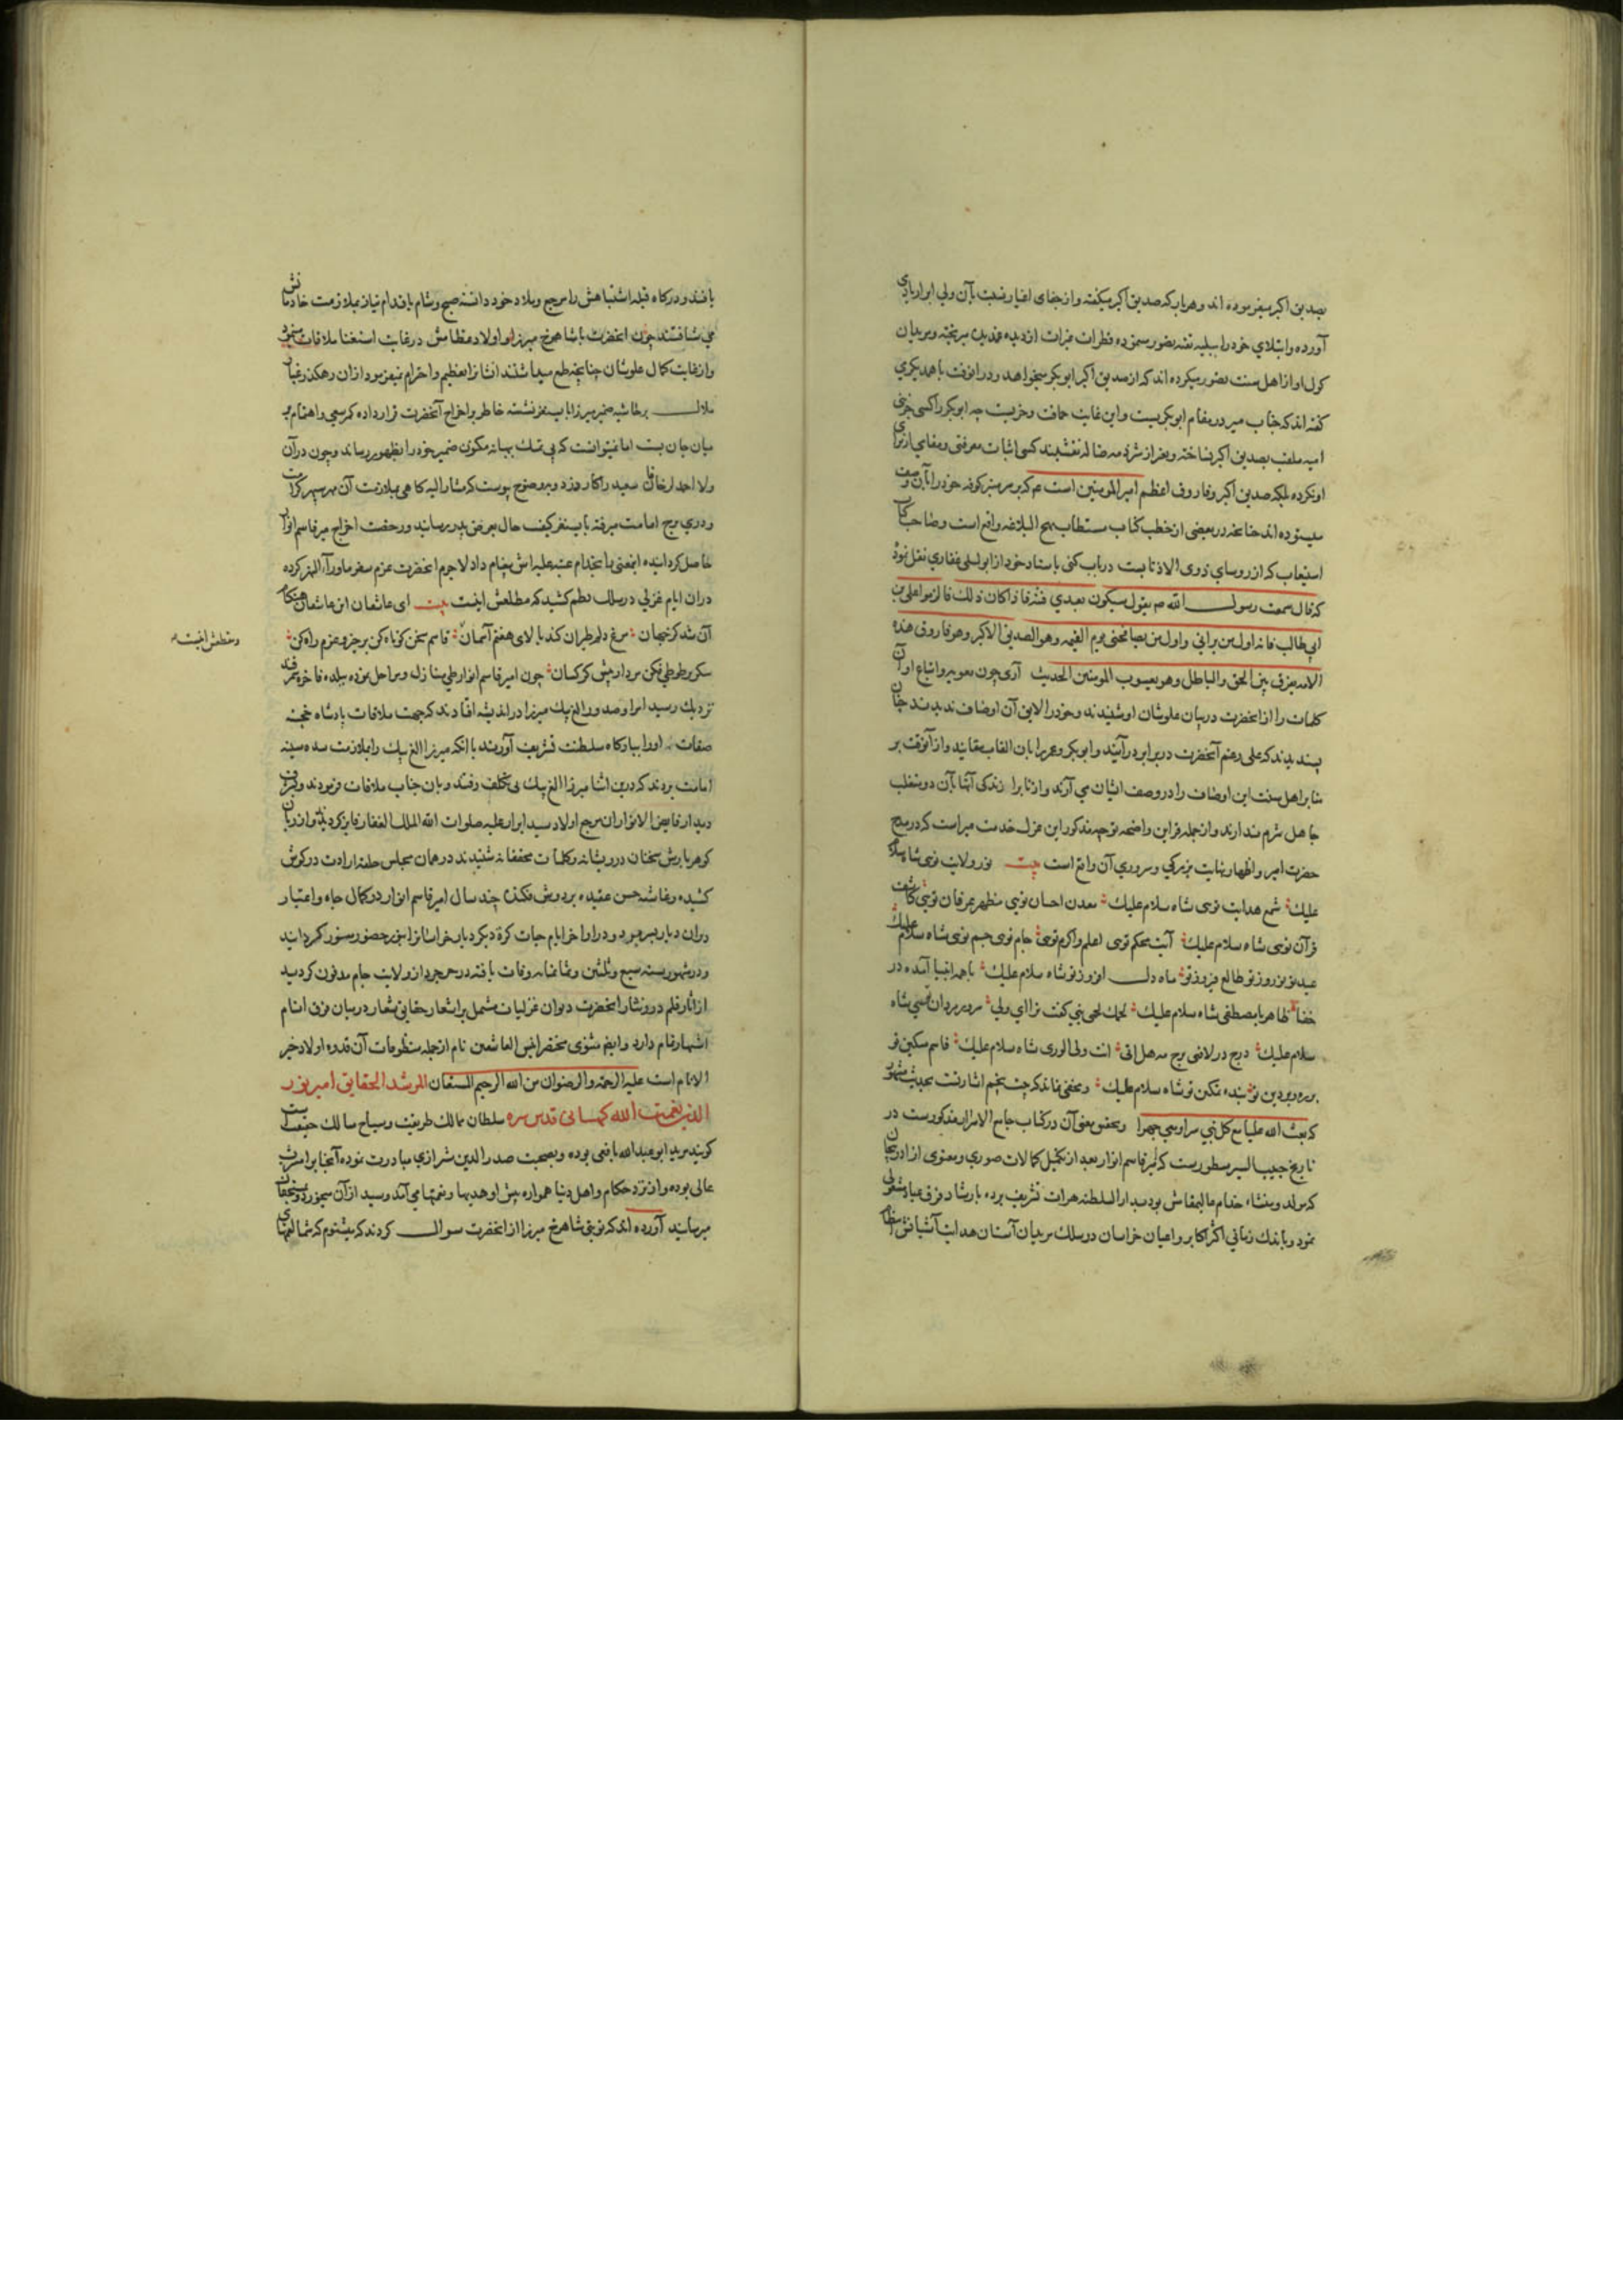 بصدیق اکبر میفرموده اند و هر بار که صدیق اکبر میگفته و از جفای اغیار نسبت بآن ولی ابرار یادی
آورده و ابتلای خود را ببلیه تقیه تصور مینموده قطرات عبرات از دیده میریخته و مریدان
کول او از اهل سنت تصور میکرده اند که از صدیق اکبر ابوبکر میخواهد و در آنوقت با همدیگری
گفته اند که جناب میر در مقام ابوبکریست و این غایت حماقت و خریت چه ابوبکر را کسی جز
ملقب بصدیق اکبر نساخته و بغیر از شرذمه ضاله نقشبند کسی اثبات معرفتی و مقامی از برای
او نکرده بلکه صدیق اکبر و فاروق اعظم امیر المومنین است ع م که بر سر منبر کوفه خود را بآن وصف
میستوده اند چنانچه در بعضی از خطب کتاب مستطاب نهج البلاغه واقع است و صاحب کتاب
استیعاب که از روسای ذوی الاذناب است در باب کنی باسناد خود از ابو لیلی غفاری نقل نموده
که قال سمعت رسول الله ص م یقول سیکون بعدی فتنه فاذا کان ذلک فالزموا علی بن
ابی طالب فانه اول من یرانی و اول من یصافحنی یوم القیمه و هو الصدیق الاکبر و هو فاروق هذه
الامه یفرق بین الحق و الباطل و هو یعسوب المومنین الحدیث آری چون معویه و اتباع او آن
کلمات را از آنحضرت در بیان علو شان او شنیدند و خود را لایق آن اوصاف ندیدند چنان
پسندیدند که علی رغم آنحضرت در برابر درآیند و ابوبکر و عمر را بان القاب بستایند و از آنوقت بر
منابر اهل سنت این اوصاف را در وصف ایشان می آرند و از نابرا زندگی آنها بآن دو متغلب
جاهل شرم ندارند و از جمله قراین واضحه توجیه مذکور این غزل خدمت میر است که در مدح
حضرت امیر و اظهار نهایت بزرگی و سروری آن واقع است بیت نور ولایت توی شاه سلام
علیک شمع هدایت توی شاه سلام علیک معدن احسان تویی مظهر عرفان تویی کاشف
قرآن توی شاه سلام علیک آیت محکم توی اعلم و اکرم توی جام توی جم توی شاه سلام علیک
عید تو نوروز تو طالع فیروز تو ماه دل افروز تو شاه سلام علیک با همه انبیا آمده در
خفا ظاهر با مصطفی شاه سلام علیک لحمک لحمی نبی گفت ترا ای ولی سرور مردان تویی شاه
سلام علیک درج در لافتی برج مه هل اتی انت ولی الوری شاه سلام علیک قاسم مسکین تو
بنده مسکن تو شاه سلام علیک و مخفی نماند که بیت پنجم اشارتست بحدیث مشهور
که بعث الله علیا مع کل نبی سرا و معی جهرا و تحقیق معنی آن در کتاب جامع الاسرار مذکور است در
تاریخ حبیب السیر مسطور است که امیر قاسم انوار بعد از تکمیل کمالات صوری و معنوی از آذربیجان
که مولد و منشاء خدام عالیمقامش بود بدار السلطنه هرات تشریف برده بارشاد فرق عباد مشغولی
نمود و باندک زمانی اکثر اکابر و اعیان خراسان در سلک مریدان آستان هدایت آشیانش انتظام
یافتند و درگاه قبله اشتباهش را مرجع و ملاذ خود دانسته صبح و شام باقدام نیاز بملازمت خادمانش
می شتافتند چون آنحضرت با شاهرخ میرزا و اولاد عظامش در غایت استغنا ملاقات مینمود
و از غایت کمال علو شان چنانچه طمع میداشتند ایشانرا تعظیم و احترام نمیفرمود از آن رهگذر غبار
ملال بر حاشیه ضمیر میرزا بایسنغر نشسته خاطر بر اخراج آنحضرت قرار داده کمر سعی و اهتمام بر
میان جان بست اما نمیتوانست که بی تمسک بهانه مکنون ضمیر خود را بظهور رساند و چون در آن
ولا احمد لر خاقان سعید را کارد زد و بوضوح پیوست که مشارالیه کاهی بملازمت آن مهر سپهر کرامت
و دری برج امامت میرفته بایسنغر کیفیت حال بعرض پدر رسانید و رخصت اخراج میر قاسم انوار
حاصل کردانیده اینمعنی باستخدام عتبه علیه اش پیغام داد لاجرم آنحضرت عزم سفر ماوراء النهر کرده
در آن ایام غزلی در سلک نظم کشید که مطلعش اینست بیت ای عاشقان ای عاشقان هنگام
آن شد کز جهان مرغ دلم طیران کند بالای هفتم آسمان قاسم سخن کوتاه کن برخیز و عزم راه کن
شکر بر طوطی فکن مردار پیش کرکسان چون امیر قاسم انوار طی منازل و مراحل نموده ببلده فاخره سمرقند
نزدیک رسید امرا و صدور الغ بیک میرزا در اندیشه افتادند که جهت ملاقات پادشاه خجسته
صفات اورا ببارگاه سلطنت تشریف آورند یا آنکه میرزا الغ بیک را بملازمت سده سنیه
امامت برند که درین اثنا میرزا الغ بیک بی تکلف رفتند و بان جناب ملاقات فرمودند و بشرف
دیدار فایض الانوار آن مرجع اولاد سید ابرار علیه صلوات الله الملک الغفار فایز گردید و از زبان
گوهر بارش سخنان درویشانه و کلمات محققانه شنیدند در همان مجلس حلقه ارادت در گوش
کشیده و غاشیه حسن عقیده بر دوش فکند چند سال امیر قاسم انوار در کمال جاه و اعتبار
در آن دیار بسر میبرد و در اواخر ایام حیات کرة دیگر دیار خراسانرا بنور حضور منور گردانید
و در شهور سنه سبع و ثلثین و ثمانمایه وفات یافته در خرجرد از ولایت جام مدفون گردید
از آثار قلم درر نثار آنحضرت دیوان غزلیات مشتمل بر اشعار حقایق شعار در میان فرق انام
اشتهار تمام دارد و ایضا مثنوی مختصر انیس العاشقین نام از جمله منظومات آن قدوه اولاد خیر
الانام است علیه الرحمة و الرضوان من الله الرحیم المستعان المرشد الحقایق امیر نور
الدین نعمت الله کهسانی قدس سره سلطان ممالک طریقت و سیاح مسالک حقیقت
گویند مرید ابو عبدالله یافعی بوده و بصحبت صدر الدین شیرازی مبادرت نموده آنجناب را مشرب
عالی بوده و از نزد حکام و اهل دنیا همواره پیش او هدیها و نعمتها می آمد و سید از آن میخورد و بمستحقان
میرسانید آورده اند که نوبتی شاهرخ میرزا از آنحضرت سوال کردند که میشنوم که شما لقمهای
و مقطعش اینست